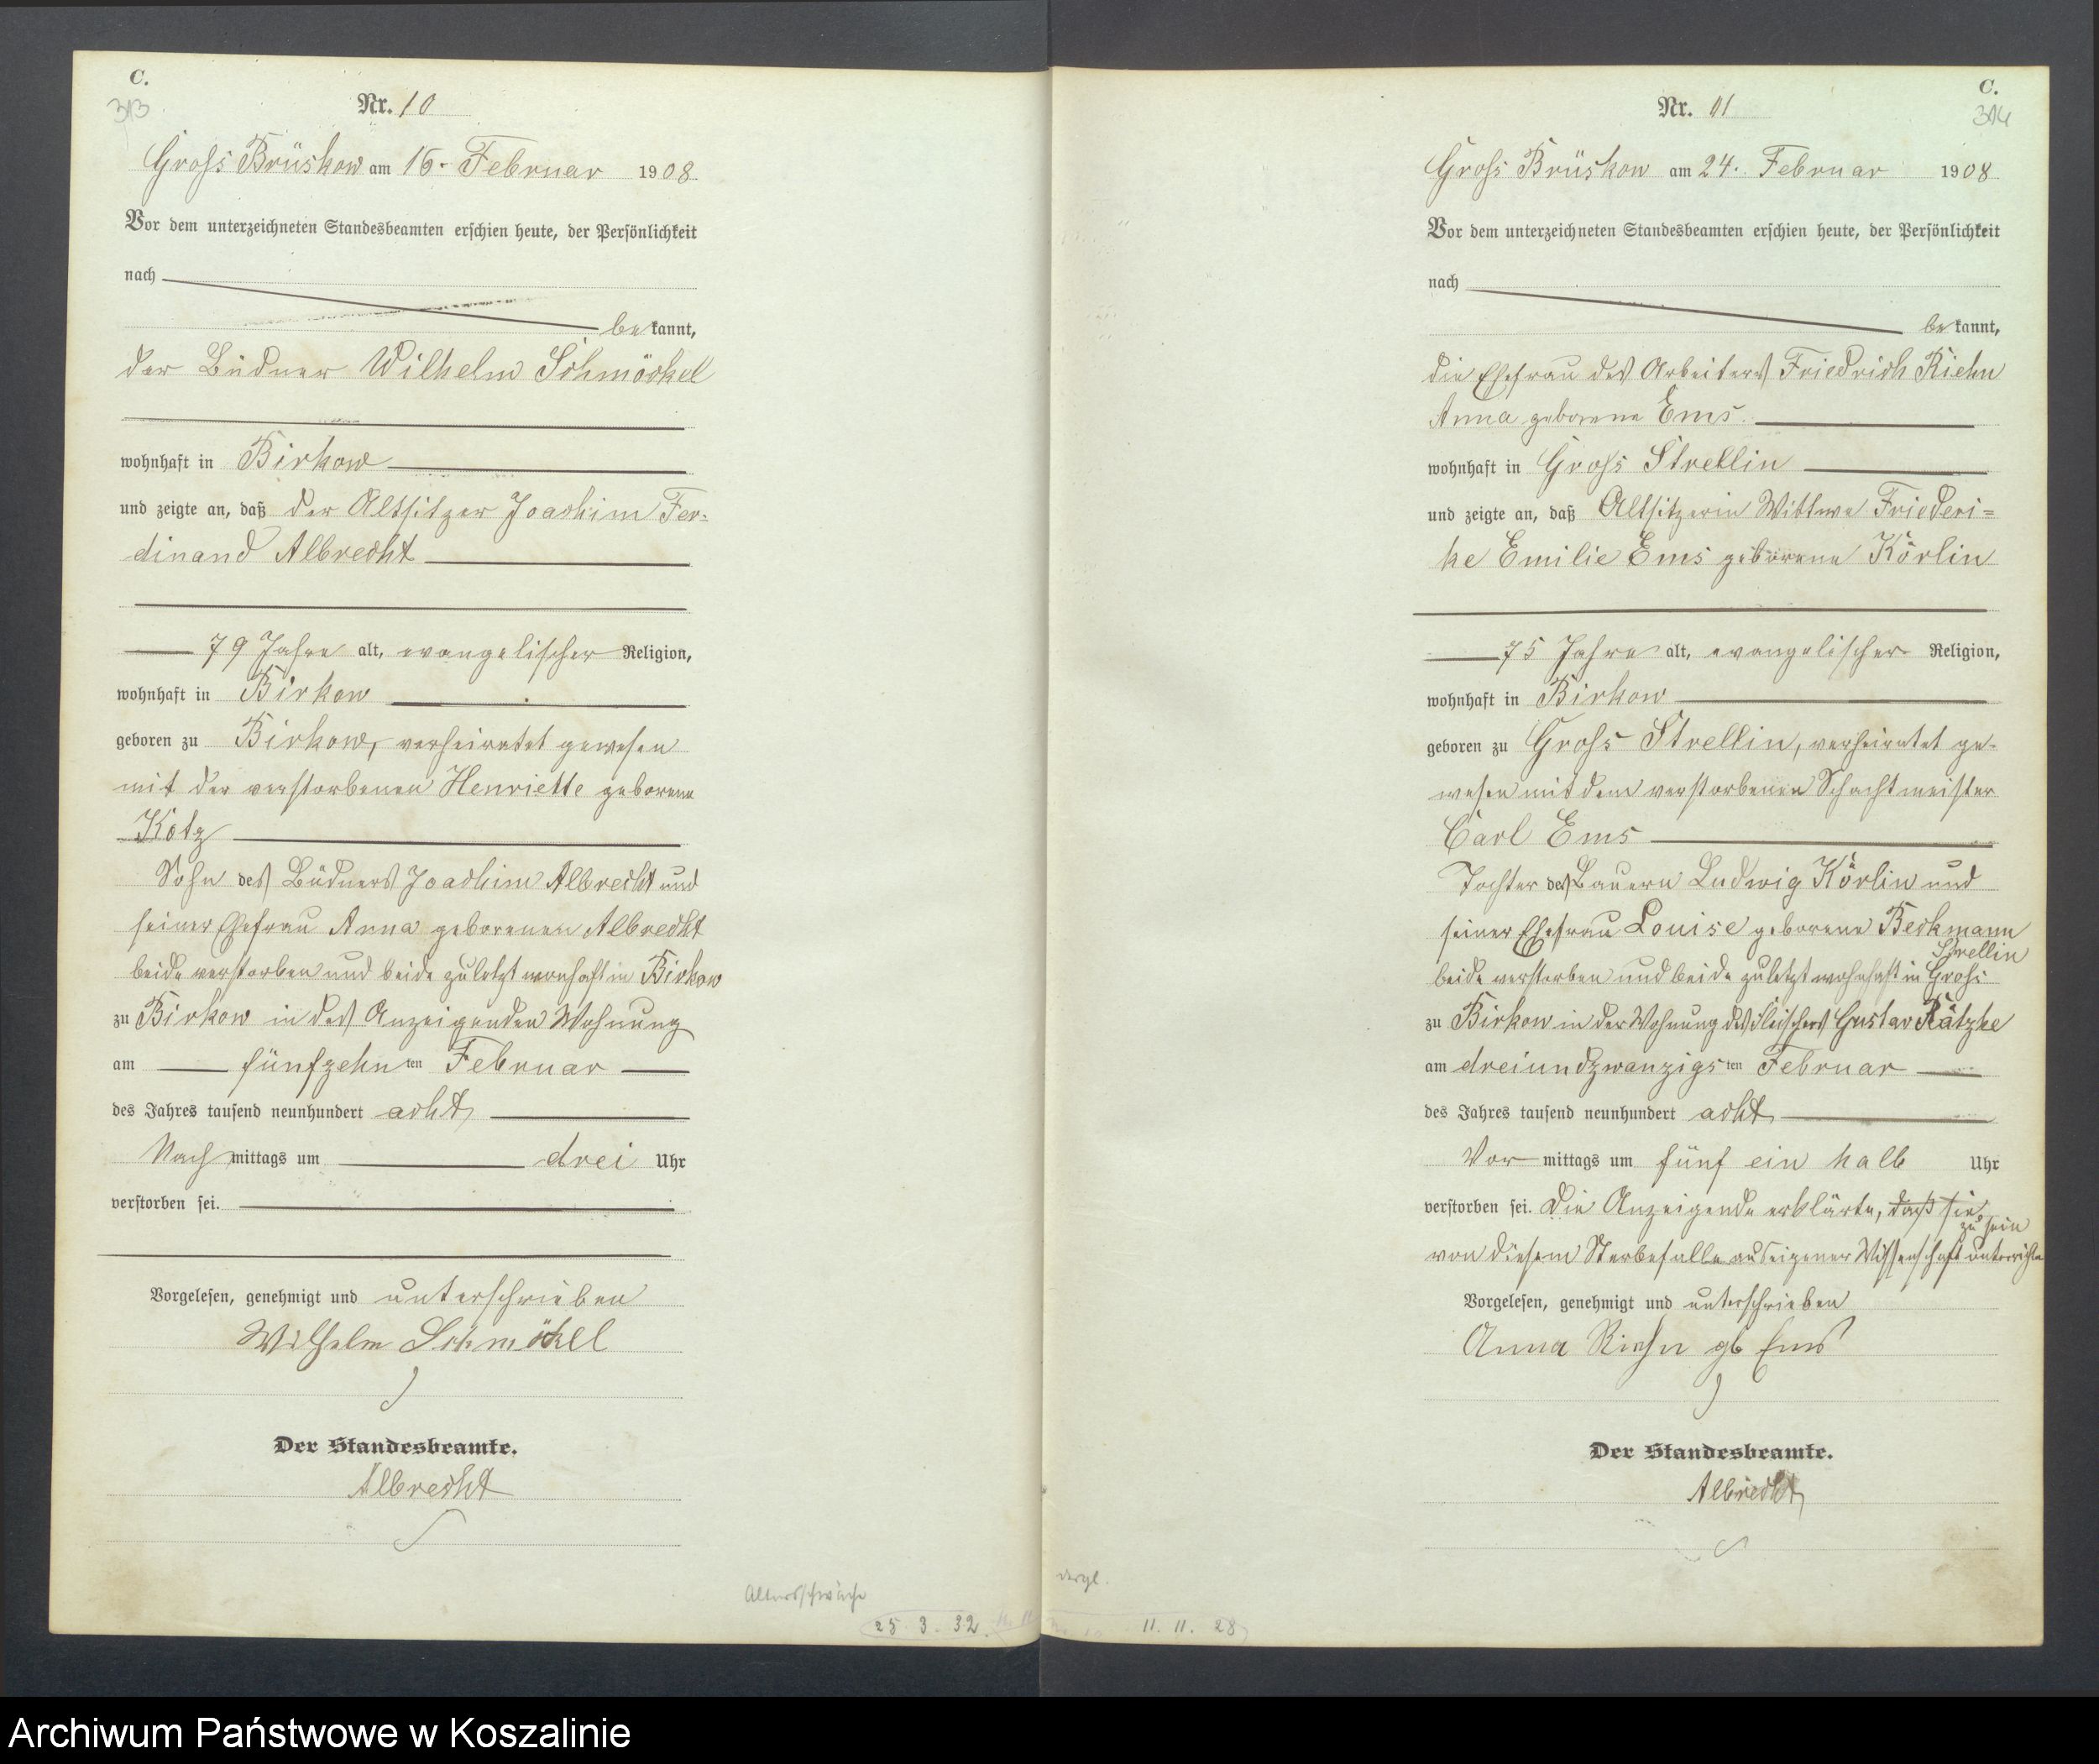 C.
313
Nr. 10
Groß Brüskow am 16. Februar 1908
Vor dem unterzeichneten Standesbeamten erschien heute, der Persönlichkeit
nach
bekannt,
der Büdner Wilhelm Schmöckel
wohnhaft in Birkow
und zeigte an, daß der Altsitzer Joachim Fer=
dinand Albrecht
79 Jahre alt, evangelischer Religion,
wohnhaft in Birkow
geboren zu Birkow, verheiratet gewesen
mit der verstorbenen Henriette geborene
Kotz
Sohn des Büdners Joachim Albrecht und
seiner Ehefrau Anna geborenen Albrecht
beide verstorben und beide zuletzt wonhaft in Birkow
zu Birkow in des Anzeigenden Wohnung
am fünfzehnten Februar
des Jahres tausend neunhundert acht
Nachmittags um drei Uhr
verstorben sei.
Vorgelesen, genehmigt und unterschrieben
Wilhelm Schmökell
Der Standesbeamte.
Albrecht
Altersschwäche
25. 3. 32.
C.
314
Nr. 11
Groß Brüskow am 24. Februar 1908
Vor dem unterzeichneten Standesbeamten erschien heute, der Persönlichkeit
nach
bekannt,
die Ehefrau des Arbeiters Friedrich Riehn
Anna geborene Ems
wohnhaft in Groß Strellin
und zeigte an, daß Altsitzerin Wittwe Friederi=
ke Emilie Ems geborene Körlin
75 Jahre alt, evangelischer Religion,
wohnhaft in Birkow
geboren zu Groß Strellin, verheiratet ge-
wesen mit dem verstorbenen Schachtmeister
Carl Ems
Tochter des Bauern Ludwig Körlin und
seiner Ehefrau Louise geborene Beckmann
Strellin
beide verstorben und beide zuletzt wohnhaft in Groß
zu Birkow in der Wohnung des Fleischers Gustav Rätzke
am dreiundzwanzigsten Februar
des Jahres tausend neunhundert acht
Vormittags um fünf ein halb Uhr
verstorben sei. Die Anzeigende erklärte, daß sie
zu sein
von diesem Sterbefalle aus eigener Wissenschaft unterrichtet
Vorgelesen, genehmigt und unterschrieben
Anna Riehn gb Ems
Der Standesbeamte.
Albrecht
dergl.
11. 11. 28
Archiwum Państwowe w Koszalinie